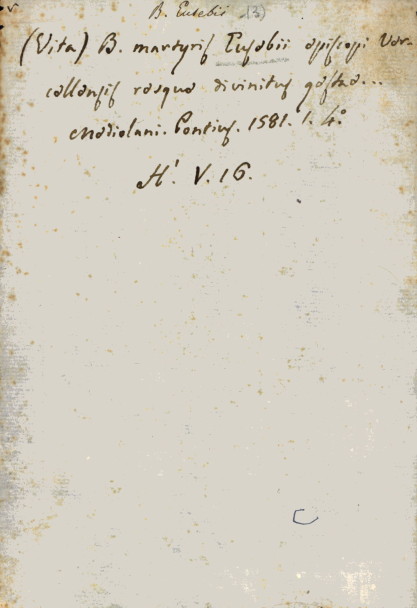 B. Eusebii (3)
(Vita) B. martyris Eusebii episcopi Ver-
cellensis resque divinitus gestae...
Mediolani. Pontius. 1581. 1. 4.°
H'. V. 16.